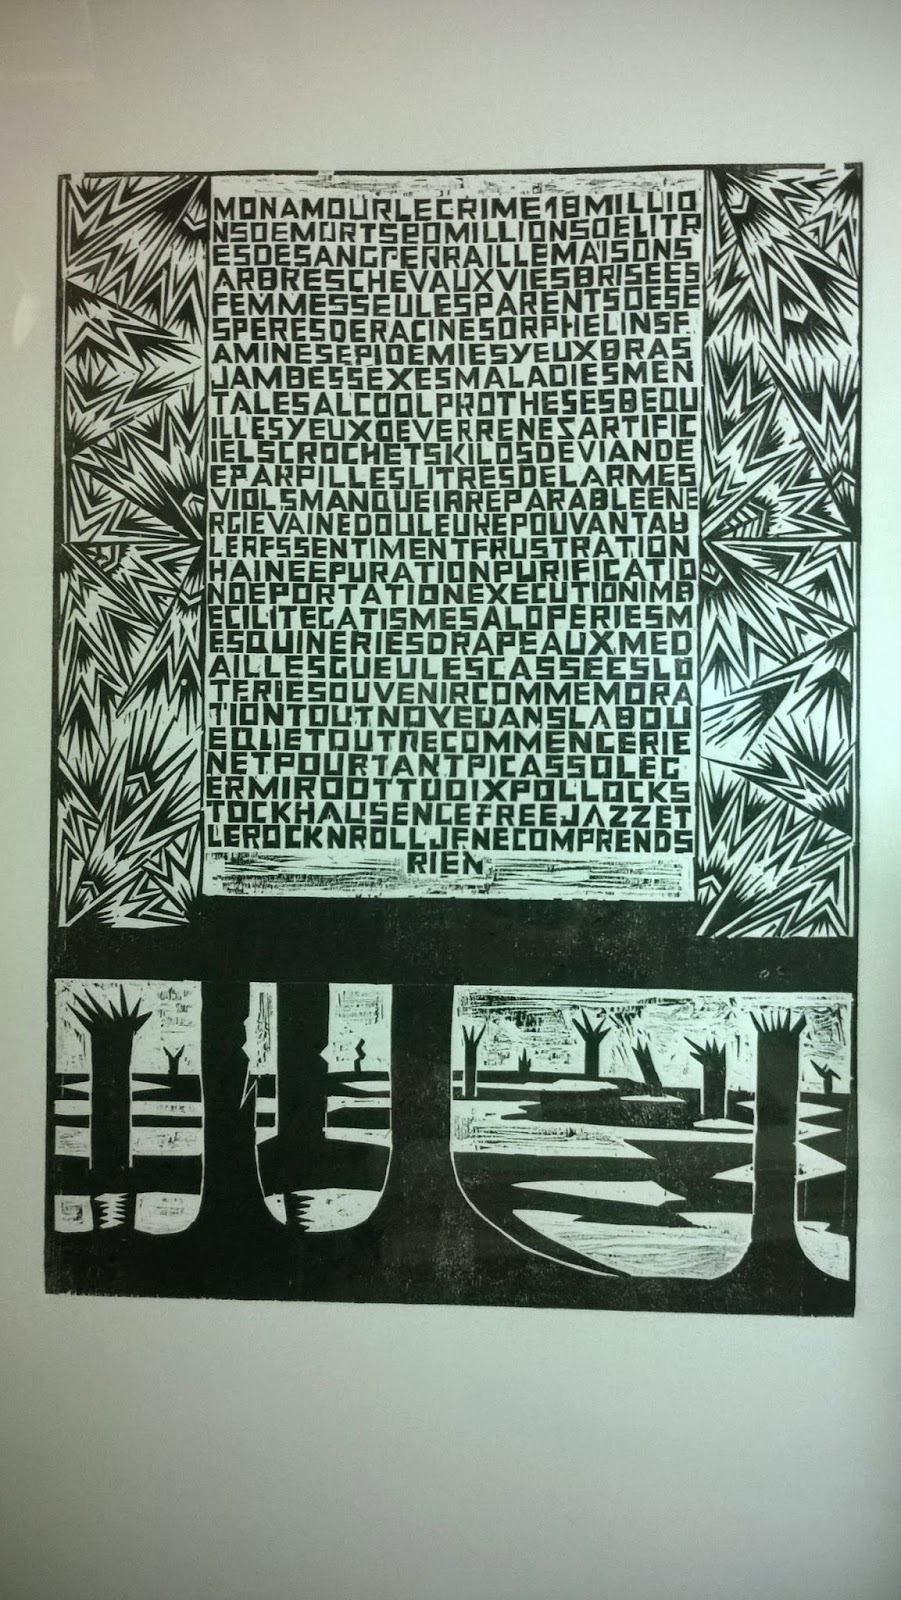 MONAMOURLECRIME18MILLIO
NSDEMORTS90MILLIONSDELITR
ESDESANGFERRAILLEMAISONS
ARBRESCHEVAUXVIESBRISEES
FEMMESSEULESPARENTSDESE
SPERESDERACINESORPHELINSF
AMINESEPIDEMIESYEUXBRAS
JAMBESSEXESMALADIESMEN
TALESALCOOLPROTHESESBEQU
ILLESYEUXDEVERRENEZARTIFIC
IELSCROCHETSKILOSDEVIANDE
EPARPILLESLITRESDELARMES
VIOLSMANQUEIRREPARABLEENE
RGIEVAINEDOULEUREPOUVANTAB
LERESSENTIMENTFRUSTRATION
HAINEEPURATIONPURIFICATIO
NDEPORTATIONEXECUTIONIMB
ECILITEGATISMESALOPERIESM
ESQUINERIESDRAPEAUXMED
AILLESGUEULESCASSEESLO
TERIESOUVENIRCOMMEMORA
TIONTOUTNOYEDANSLABOU
EQUETOUTRECOMMENCERIE
NETPOURTANTPICASSOLEG
ERMIROOTTODIXPOLLOCKS
TOCKHAUSENCEFREEJAZZET
LEROCKNROLLJENECOMPRENDS
RIEN